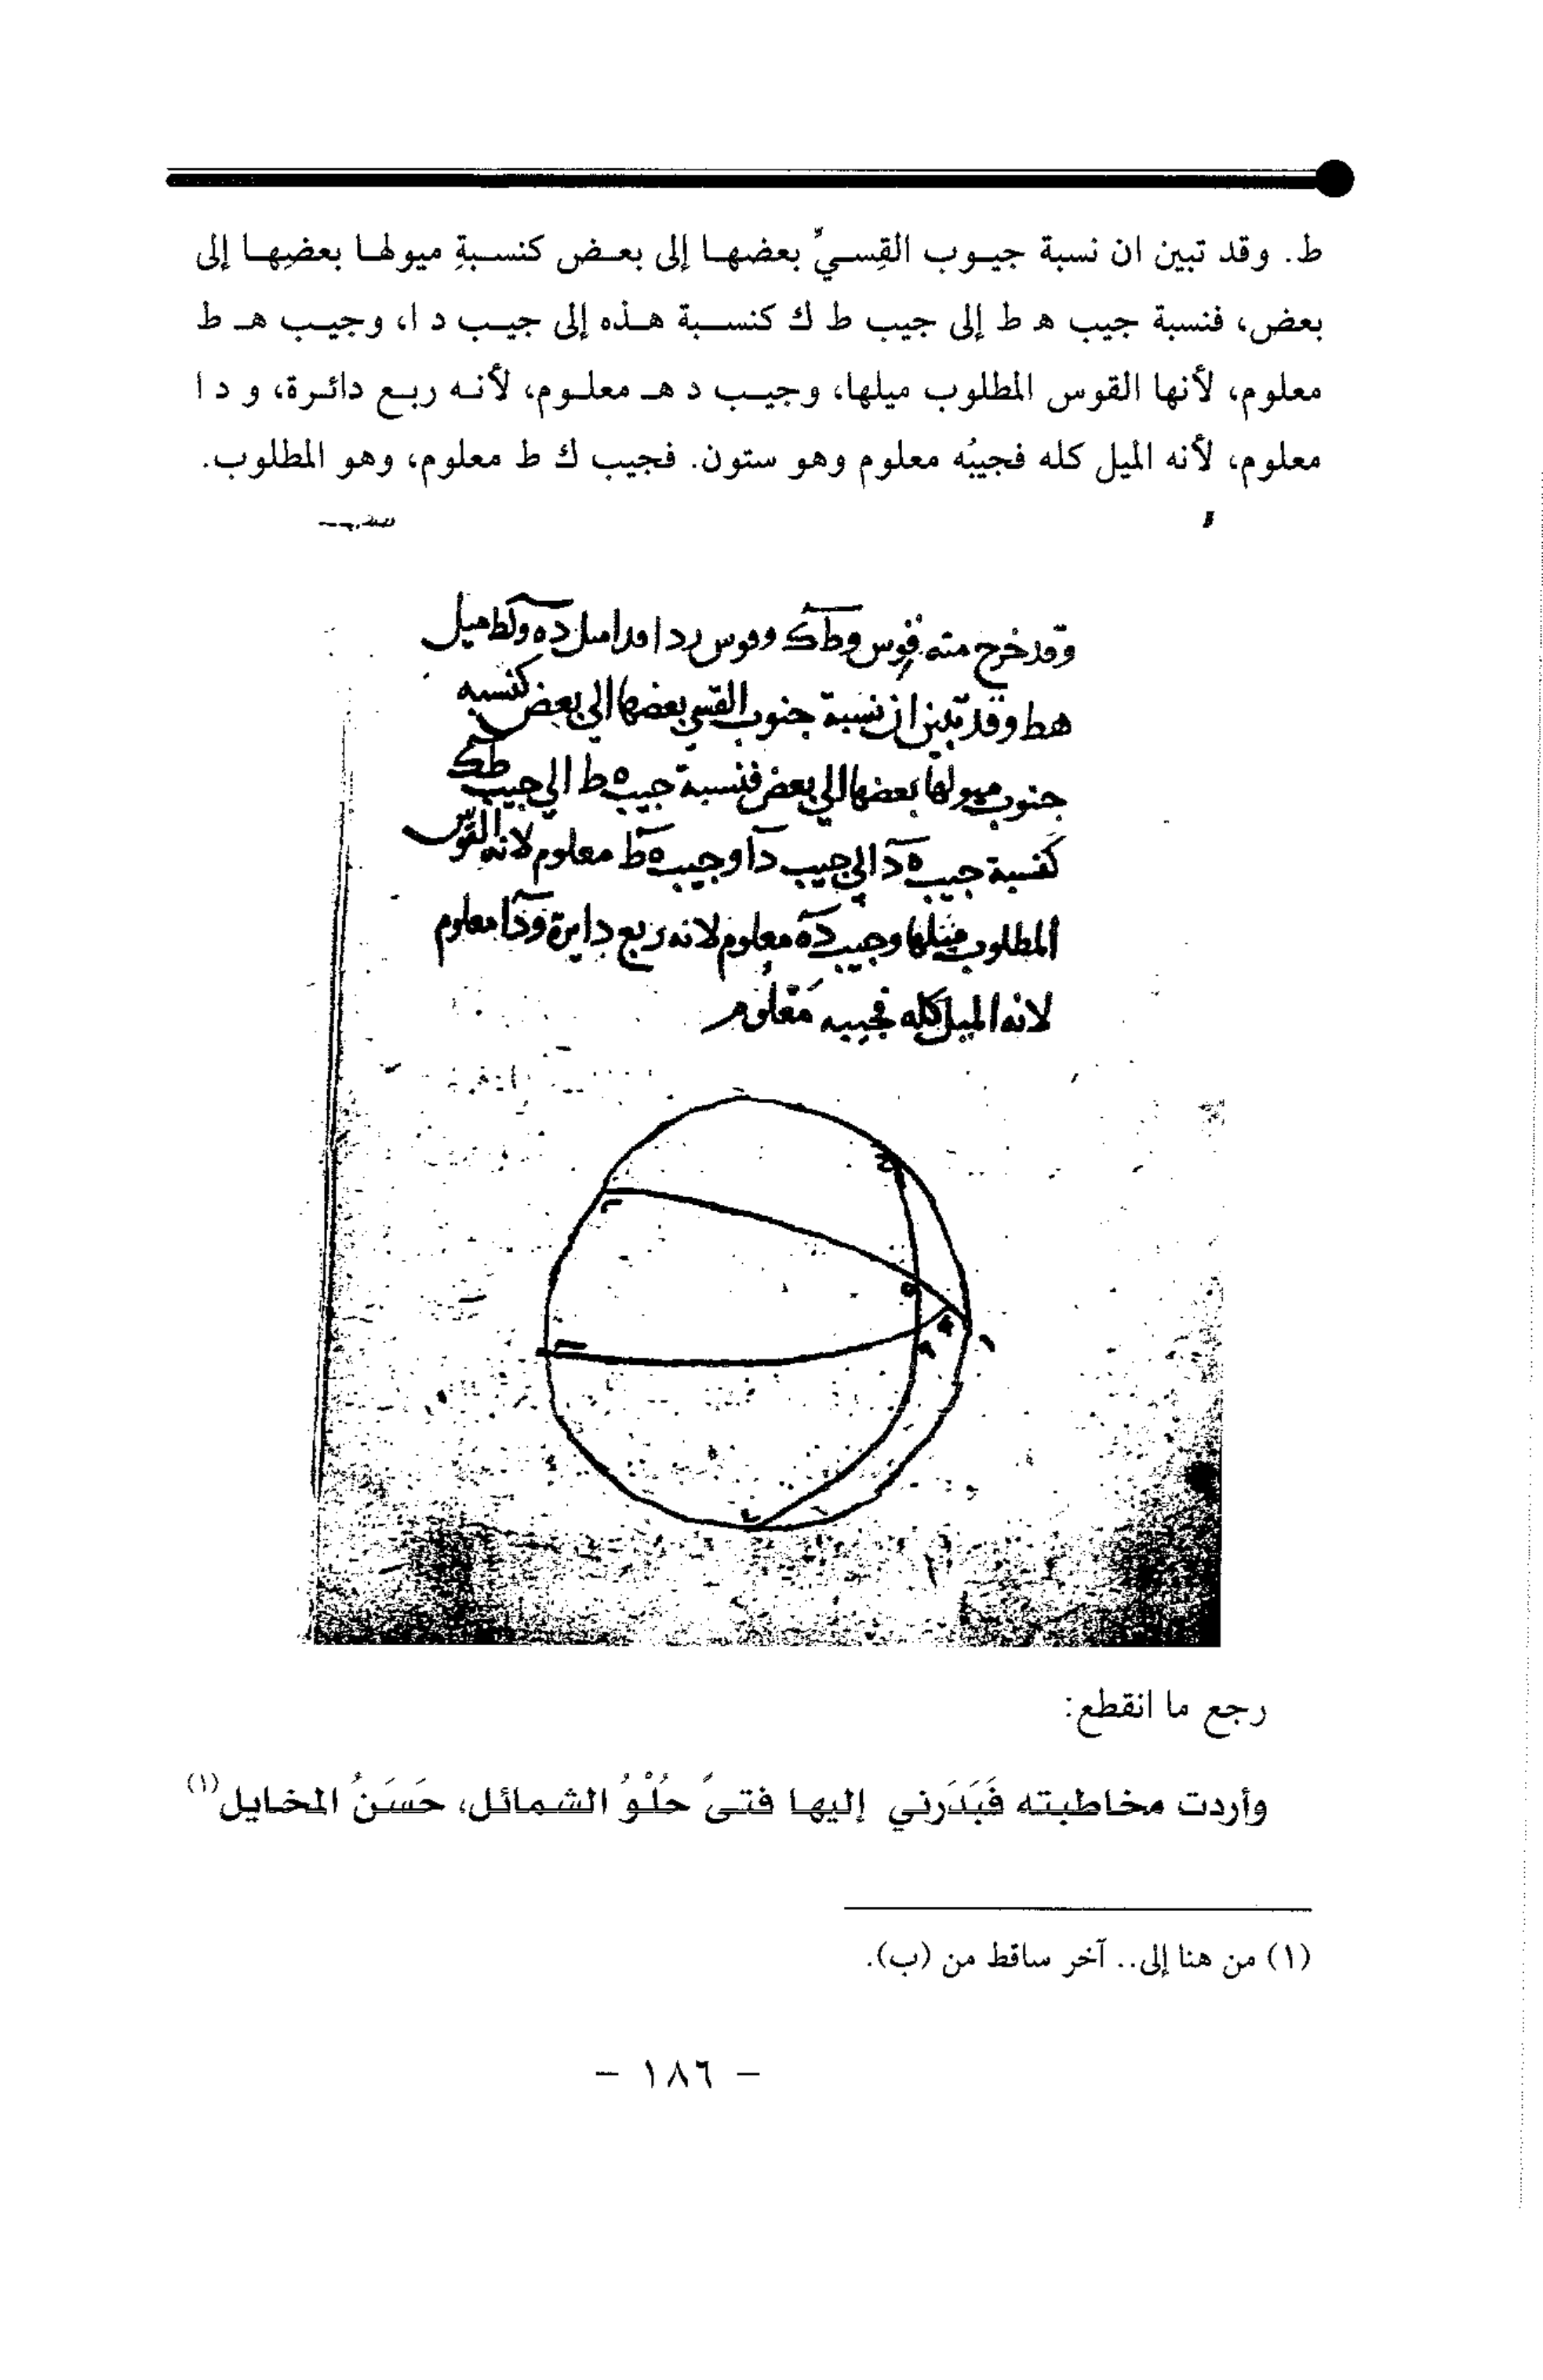 ط. وقد تبين ان نسبة جيـوب القِسـيِّ بعضهـا إلى بعـض كنسـبةِ ميولهـا بعضِهـا إلى
بعض، فنسبة جيب هـ ط إلى جيب ط ك كنسـبة هـذه إلى جيـب د ا، وجيـب هـ ط
معلوم، لأنها القوس المطلوب ميلها، وجيـب د هـ معلـوم، لأنـه ربـع دائـرة، و د ا
معلوم، لأنه الميل كله فجيبُه معلوم وهو ستون. فجيب ك ط معلوم، وهو المطلوب.
وقد خرج منه قوس وطك وقوس دا ميل ده ولط ميل
هط وقد تبين ان نسبة جنوب القسي بعضها الي بعض كنسبه
جنوب ميولها بعضها الي بعض فنسبة جيب ه ط الي جيب طك
كنسبة جيب ه د الي جيب دا وجيب ه ط معلوم لانه القوس
المطلوب ميلها وجيب ده معلوم لانه ربع دايرة ودا معلوم
لانه الميل كله فجيبه معلوم
رجع ما انقطع:
وأردت مخاطبته فَبَدَرني إليها فتىً حُلْوُ الشمائل، حَسَنُ المخايل(١)
(١) من هنا إلى.. آخر ساقط من (ب).
– ١٨٦ –